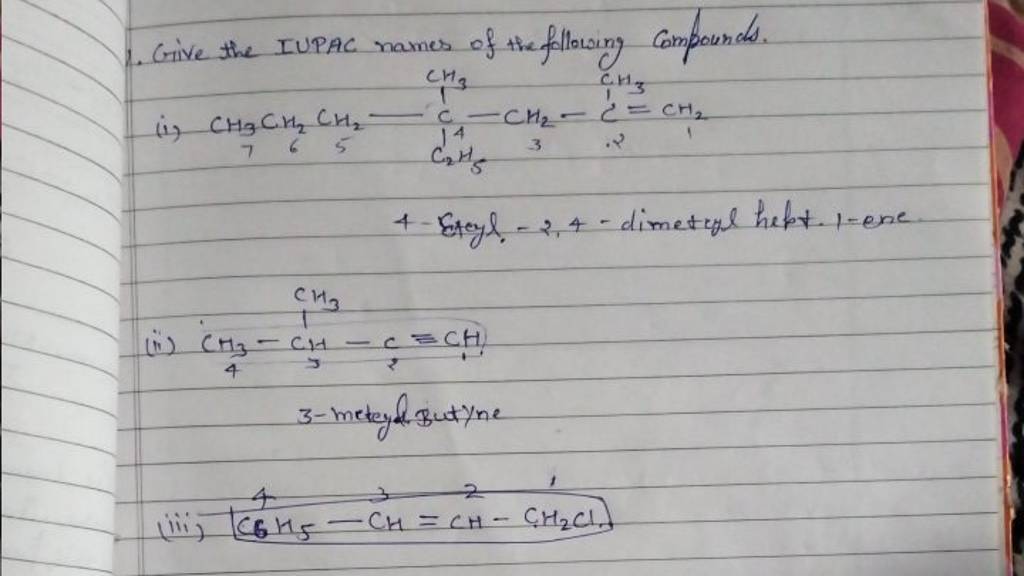 1. Give the IUPAC names of the following Compounds.
CH3 CH3
(i) CH3CH2 CH2 — C — CH2 — C = CH2
7 6 5 4 3 2 1
C2H5
4-Eteyl - 2, 4 - dimeteyl hept. 1-ene.
CH3
(ii) CH3 — CH — C ≡ CH
4 3 2 1
3-meteyl Butyne
4 3 2 1
(iii) C6H5 — CH = CH - CH2Cl.